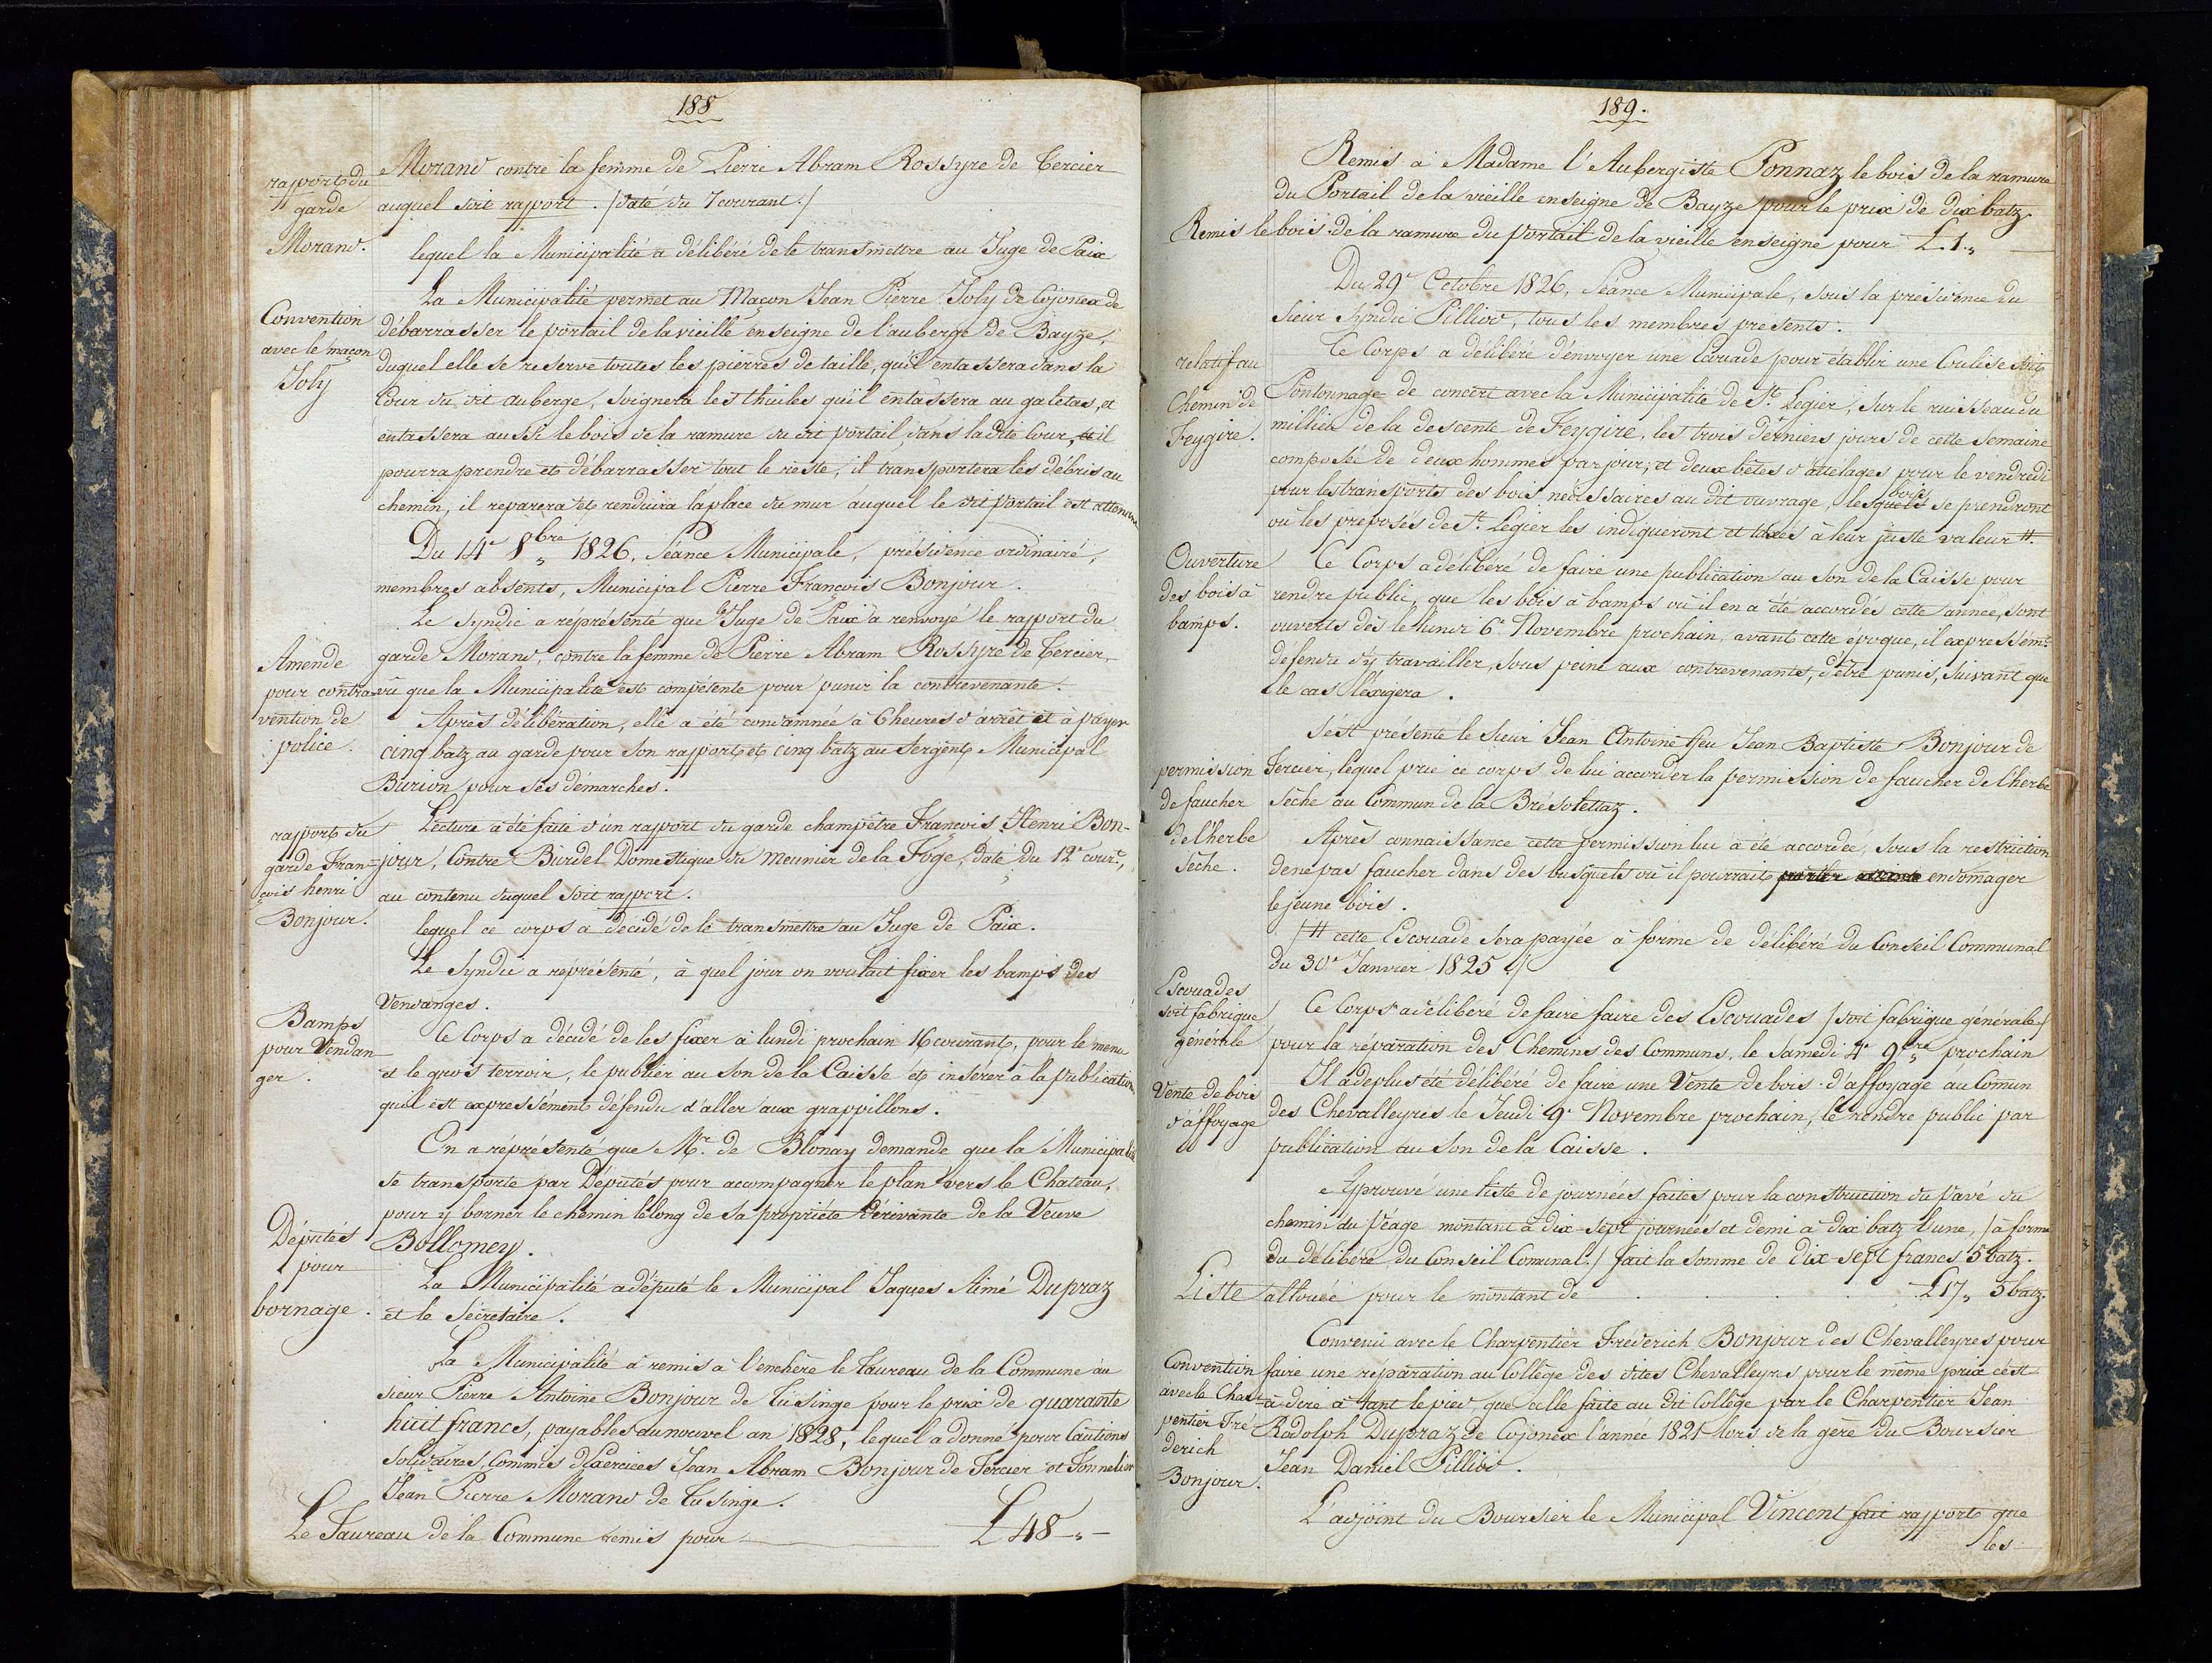 188
rapport du
garde
Morand.
Morand contre la femme de Pierre Abram Rossyre de Tercier
auquel soit rapport. /daté du 7 courant./
lequel la Municipalité a délibéré de le transmettre au Juge de Paix
Convention
avec le maçon
Joly
La Municipalité permet au Maçon Jean Pierre Joly de Cojonex de
débarrasser le portail de la vieille enseigne de l'auberge de Bayze,
duquel elle se reserve toutes les pierres de taille, qu'il entassera dans la
Cour du dit auberge, soignera les thuiles qu'il entassera au galetas, et
entassera aussi le bois de la ramure du dit portail dans la dite Cour, et il
pourra prendre et débarrasser tout le reste, il transportera les débris au
chemin, il reparera et renduira la place du mur auquel le dit portail est attenant
Du 14e 8bre 1826, Séance Municipale, présidence ordinaire,
membres absents, Municipal Pierre François Bonjour.
Amende
pour contra-
vention de
police.
Le Syndic a réprésenté que le Juge de Paix a renvoyé le rapport du
garde Morand, contre la femme de Pierre Abram Rossyre de Tercier,
vû que la Municipalité est compétente pour punir la contrevenante.
Après délibération, elle a été condamnée à 6 heures d'arrêt et à payer
cinq batz au garde pour son rapport et cinq batz au sergent Municipal
Burion pour ses démarches.
rapport du
garde Fran-
çois henri
Bonjour.
Lecture a été faite d'un rapport du garde champêtre François Henri Bon-
jour, Contre Burdel Domestique du meunier de la Foge, daté du 12e court,
au contenu duquel soit rapport.
lequel ce corps a décidé de le transmettre au Juge de Paix.
Le Syndic a réprésenté, à quel jour on voulait fixer les bamps des
Vendanges.
Bamps
pour Vendan-
ger.
Ce Corps a décidé de les fixer à lundi prochain 16 courant, pour le menu
et le gros terroir, le publier au son de la Caisse et insérer à la publication
qu'il est expressément défendu d'aller aux grappillons.
On a réprésenté que Mr. de Blonay demande que la Municipalité
se transporte par Députés pour accompagner le plan vers le Chateau,
pour y borner le chemin le long de sa propriété dérivante de la Veuve
Bollomey.
Députés
pour
bornage.
La Municipalité a député le Municipal Jaques Aimé Dupraz
et le Secretaire.
La Municipalité a remis à l'enchère le Taureau de la Commune au
sieur Pierre Antoine Bonjour de Tusinge pour le prix de quarante
huit francs, payables au nouvel an 1828, lequel a donné pour Cautions
solidaires, Commis d'Exercices Jean Abram Bonjour de Tercier et Tonnelier
Jean Pierre Morand de Tusinge.
Le Taureau de la Commune remis pour L 48 „ –
189.
Remis à Madame l'Aubergiste Ponnaz le bois de la ramure
du Portail de la vieille enseigne de Bayze pour le prix de dix batz.
Remis le bois de la ramure du portail de la vieille enseigne pour L. 1„
Du 29e Octobre 1826, Séance Municipale, sous la présidence du
sieur Syndic Pilliod, tous les membres presents.
relatif au
Chemin de
Feygire.
Ce Corps a délibéré d'envoyer une Escouade pour établir une Coulise soit
Pontonnage de concert avec la Municipalité de St. Legier, sur le ruisseau du
millieu de la descente de Feygire, les trois derniers jours de cette semaine
composée de deux hommes par jour, et deux bêtes d'attelages pour le vendredi
pour les transports des bois nécessaires au dit ouvrage, lesquels bois se prendront
où les preposés de St. Legier les indiqueront et taxés à leur juste valeur #.
Ouverture
des bois à
bamps.
Ce Corps a délibéré de faire une publication au son de la Caisse pour
rendre public, que les bois à bamps où il en a été accordés cette année, sont
ouverts dès le lundi 6e Novembre prochain, avant cette époque, il expressémt
defendu d'y travailler, sous peine aux contrevenants, d'être punis, suivant que
le cas l'éxigera.
permission
de faucher
de l'herbe
sèche.
S'est présenté le Sieur Jean Antoine feu Jean Baptiste Bonjour de
Tercier, lequel prie ce corps de lui accorder la permission de faucher de l'herbe
sèche au Commun de la Brésolettaz.
Après connaissance cette permission lui a été accordée, sous la restriction
de ne pas faucher dans des bosquets où il pourrait endomager
le jeune bois.
/# cette Escouade sera payée à forme de délibéré du Conseil Communal
du 30e Janvier 1825 #/
Escouades
soit fabrique
générale
Ce Corps a délibéré de faire faire des Escouades /soit fabrique générale/
pour la réparation des Chemins des Communs, le Samedi 4e 9bre prochain
Vente de bois
d'affoyage
Il a de plus été délibéré de faire une Vente de bois d'affoyage au Comun
des Chevalleyres le Jeudi 9e Novembre prochain, le rendre public par
publication au Son de la Caisse.
Approuvé une liste de journées faites pour la construction du pavé du
chemin du Péage montant à dix-sept journées et demi à dix batz l'une, /à forme
du délibéré du Conseil Comunal./ fait la somme de dix-sept francs 5 batz.
Liste allouée pour le montant de . . . . L 17„ 5 batz.
Convention
avec le Char-
pentier Fré-
derich
Bonjour.
Convenu avec le Charpentier Frederich Bonjour des Chevalleyres pour
faire une reparation au Collège des dites Chevalleyres pour le même prix c'est
à dire à tant le pied que celle faite au dit Collège par le Charpentier Jean
Rodolph Dupraz de Cojonex l'année 1821 lors de la gère du Boursier
Jean Daniel Pilliod.
L'adjoint du Boursier le Municipal Vincent fait rapport que
les